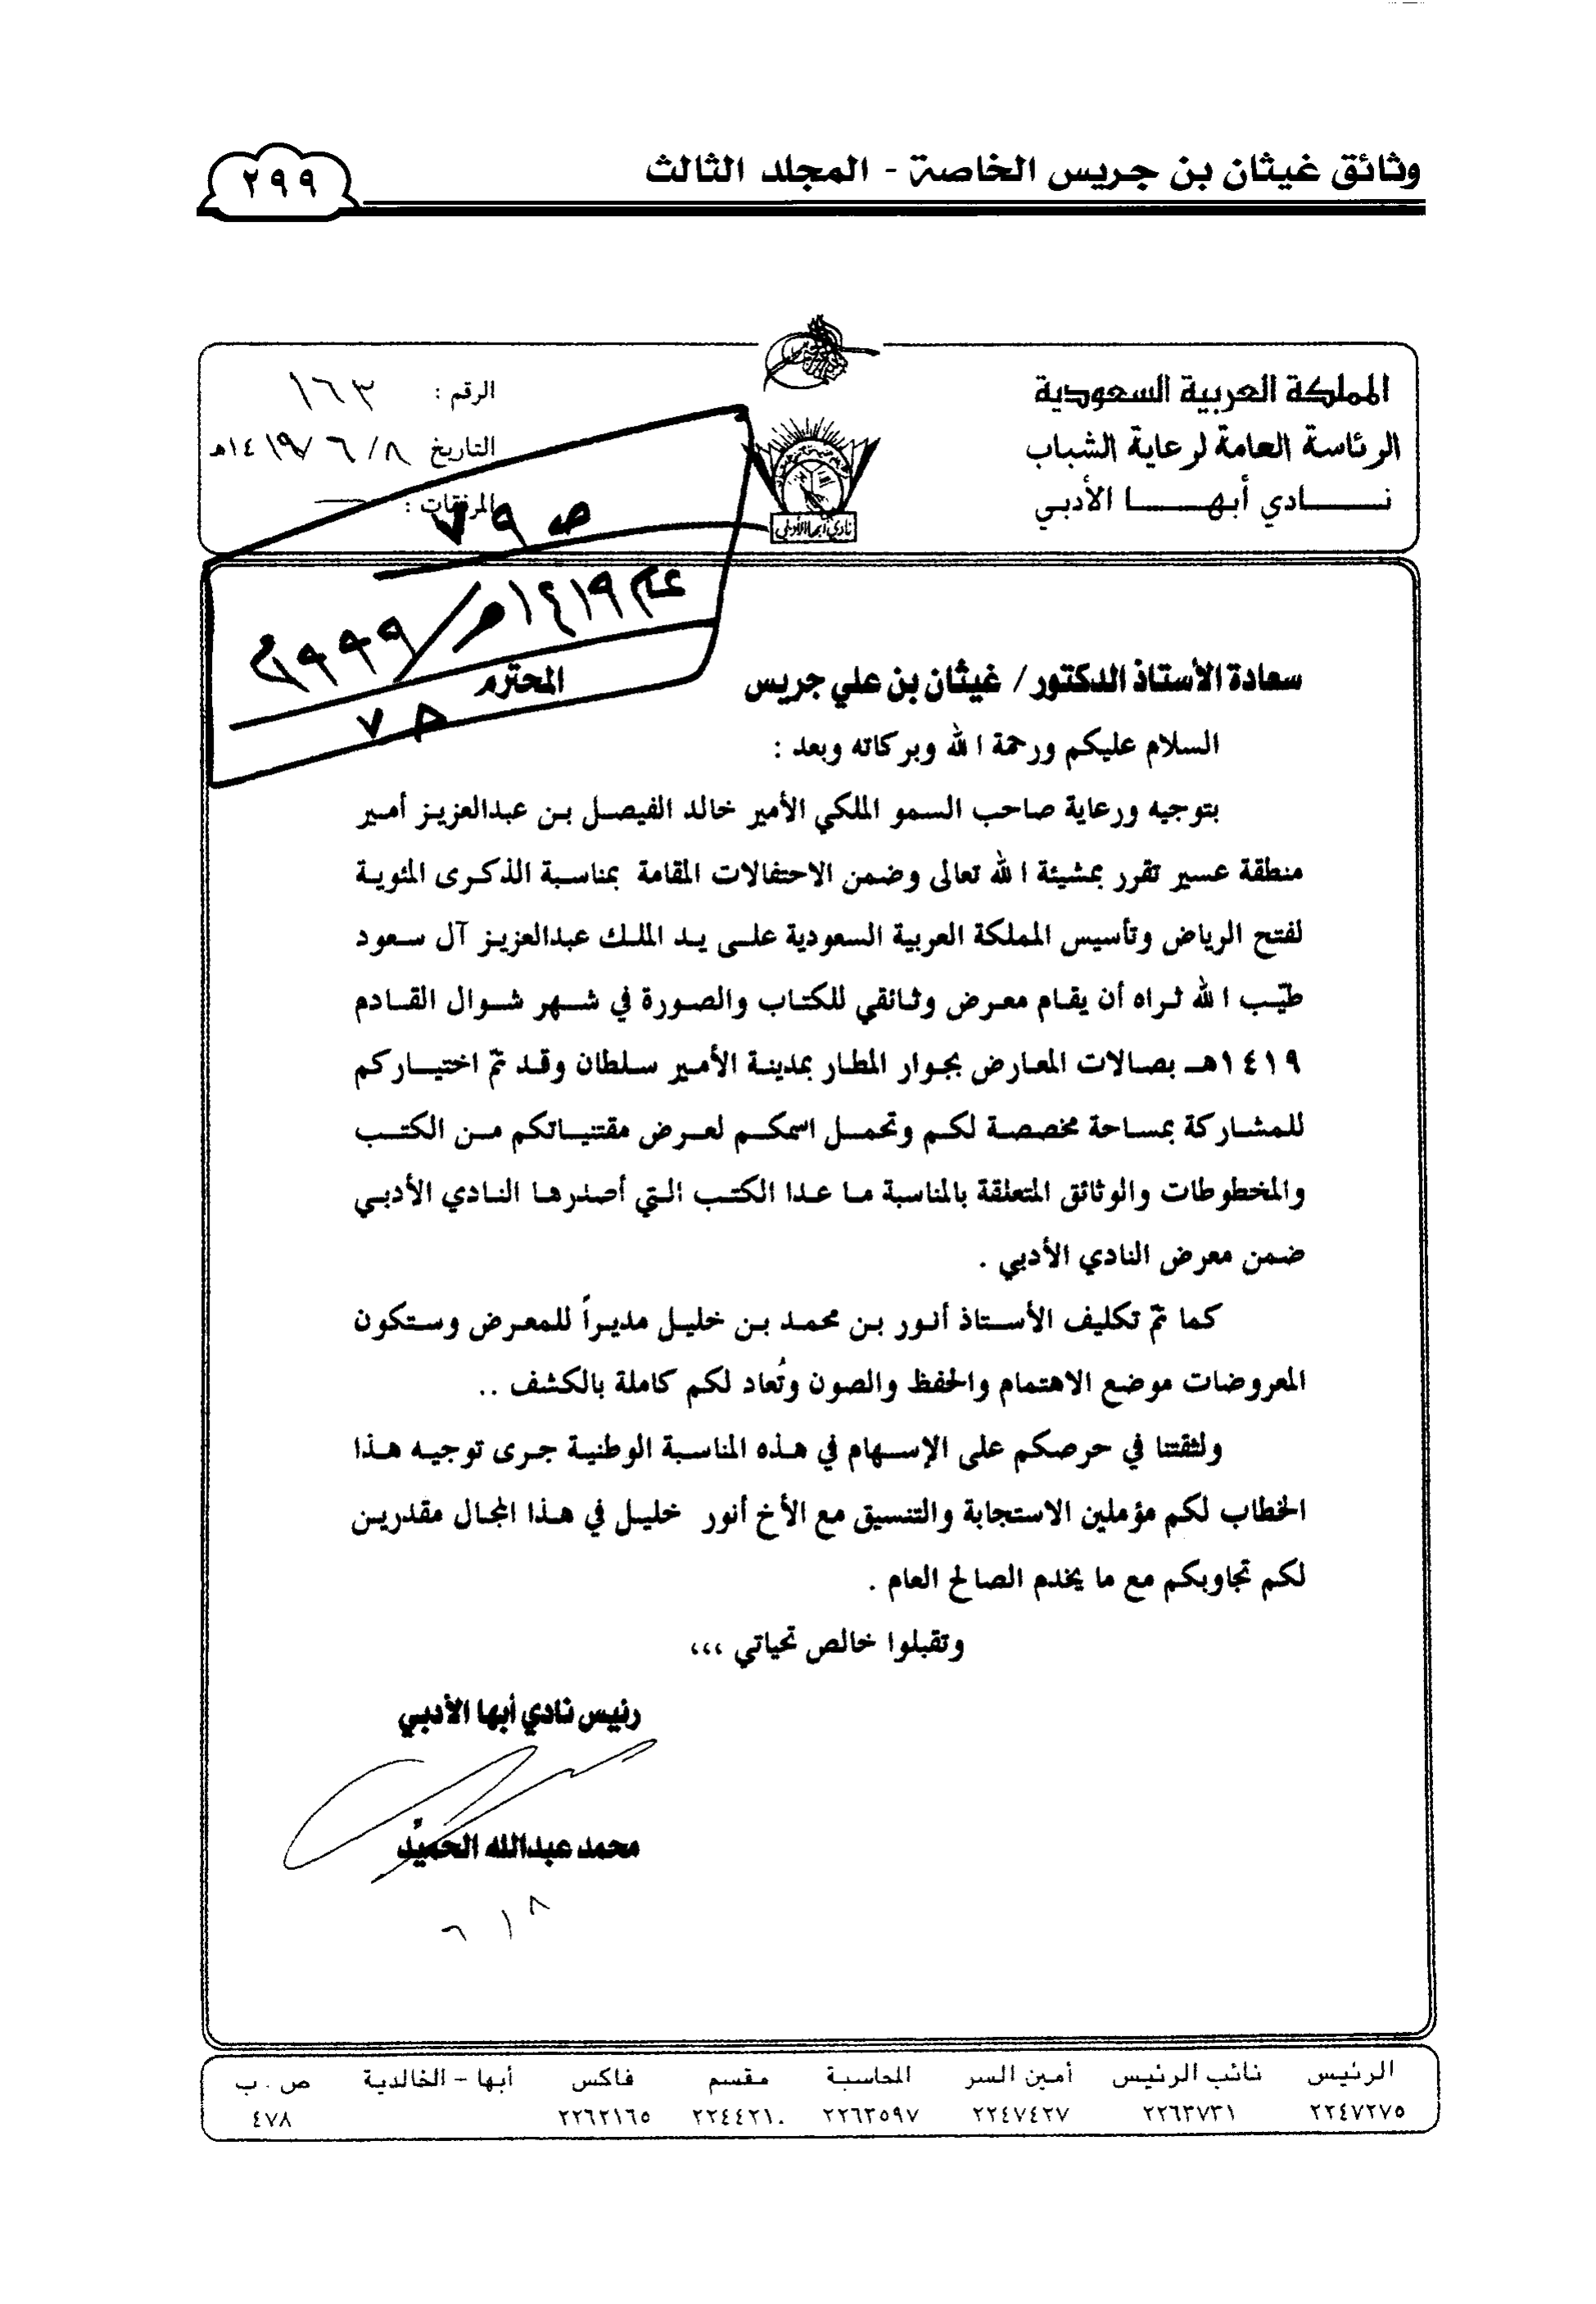 وثائق غيثان بن جريس الخاصة - المجلد الثالث
٢٩٩
المملكة العربية السعودية
الرئاسة العامة لرعاية الشباب
نادي أبها الأدبي
الرقم : ١٦٣
التاريخ ٨ / ٦ / ١٤١٩هـ
المرفقات :
نادي أبها الأدبي
ص ٧٩
عام ١٤١٩هـ / ١٩٩٩م
سعادة الأستاذ الدكتور / غيثان بن علي جريس المحترم
السلام عليكم ورحمة الله وبركاته وبعد :
بتوجيه ورعاية صاحب السمو الملكي الأمير خالد الفيصل بن عبدالعزيز أمير
منطقة عسير تقرر بمشيئة الله تعالى وضمن الاحتفالات المقامة بمناسبة الذكرى المئوية
لفتح الرياض وتأسيس المملكة العربية السعودية على يد الملك عبدالعزيز آل سعود
طيّب الله ثراه أن يقام معرض وثائقي للكتاب والصورة في شهر شوال القادم
١٤١٩هـ بصالات المعارض بجوار المطار بمدينة الأمير سلطان وقد تمّ اختياركم
للمشاركة بمساحة مخصصة لكم وتحمل اسمكم لعرض مقتنياتكم من الكتب
والمخطوطات والوثائق المتعلقة بالمناسبة ما عدا الكتب التي أصدرها النادي الأدبي
ضمن معرض النادي الأدبي .
كما تمّ تكليف الأستاذ أنور بن محمد بن خليل مديراً للمعرض وستكون
المعروضات موضع الاهتمام والحفظ والصون وتُعاد لكم كاملة بالكشف ..
ولثقتنا في حرصكم على الإسهام في هذه المناسبة الوطنية جرى توجيه هذا
الخطاب لكم مؤملين الاستجابة والتنسيق مع الأخ أنور خليل في هذا المجال مقدرين
لكم تجاوبكم مع ما يخدم الصالح العام .
وتقبلوا خالص تحياتي ،،،
رئيس نادي أبها الأدبي
محمد عبدالله الحميّد
٨ / ٦
الرئيس نائب الرئيس أمين السر المحاسبة مقسم فاكس أبها - الخالدية ص . ب
٢٢٤٧٢٧٥ ٢٢٦٣٧٣١ ٢٢٤٧٤٢٧ ٢٢٦٣٥٩٧ ٢٢٤٤٢١٠ ٢٢٦٢١٦٥ ٤٧٨